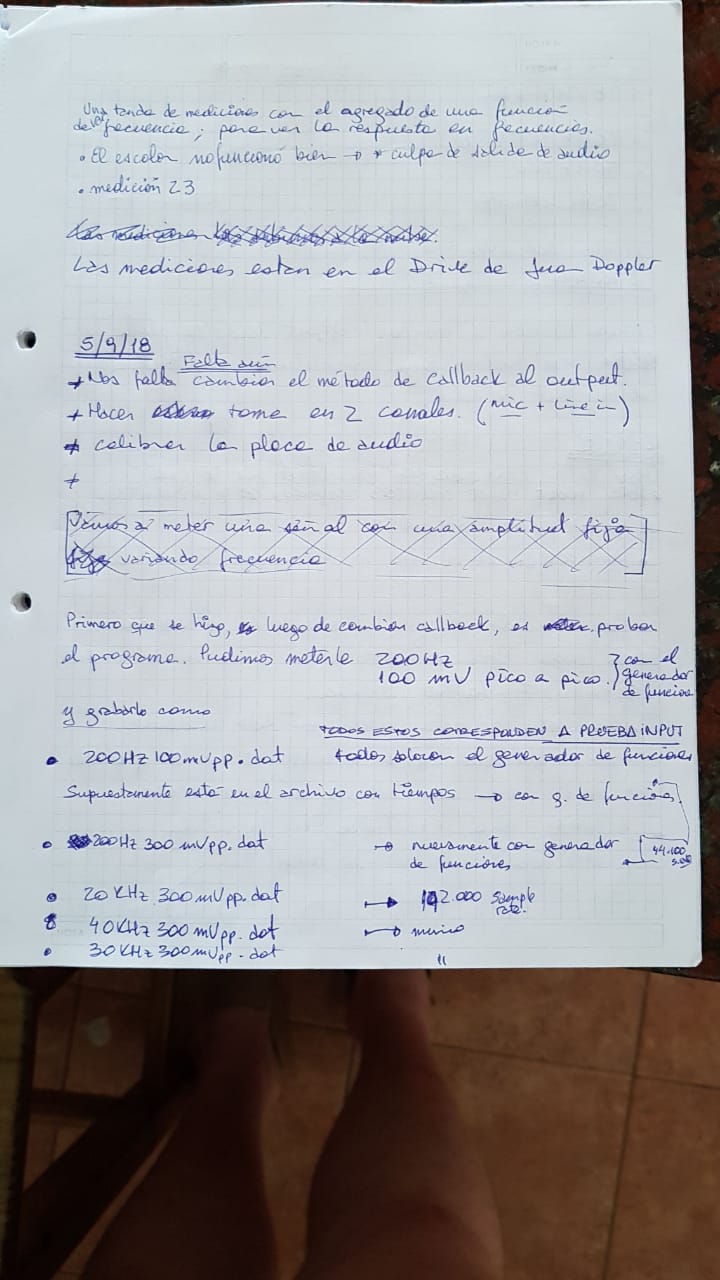 Una tanda de mediciones con el agregado de una función
de la frecuencia; para ver la respuesta en frecuencias.
• El escalon no funcionó bien → culpa de salida de audio
• medición 23
Las mediciones estan en el Drive de Juan Doppler
5/9/18
Falta aún
+ Nos falta cambiar el método de callback al output.
+ Hacer toma en 2 canales. (mic + Line in)
+ calibrar la placa de audio
+
Vamos a meter una señal con una amplitud fija
variando frecuencia
Primero que se hizo, luego de cambiar callback, es probar
el programa. Pudimos meterle 200Hz
100 mV pico a pico. } con el generador de función
y grabarlo como
TODOS ESTOS CORRESPONDEN A PRUEBA INPUT
• 200Hz 100mVpp.dat todos con el generador de funciones
Supuestamente está en el archivo con tiempos → con g. de funciones
• 200Hz 300 mVpp.dat → nuevamente con generador
de funciones
44.100
• 20 KHz 300mVpp.dat → 192.000 sample rate.
• 40KHz 300mVpp.dat → mismo
• 30KHz 300mVpp.dat "